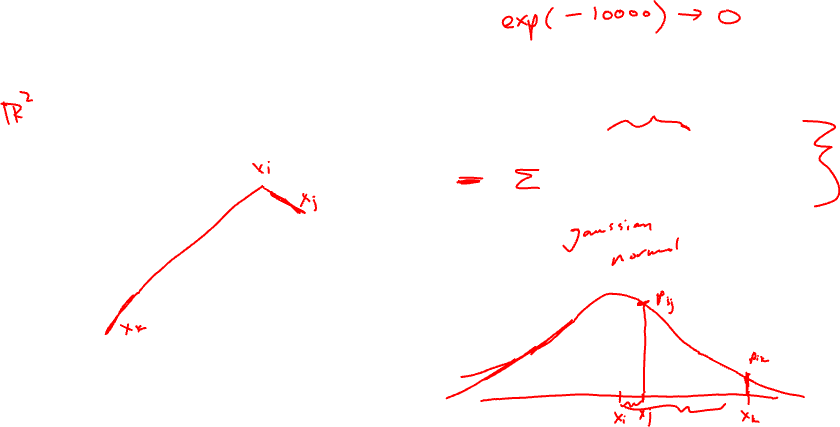 exp(-10000) → 0
ℝ²
xi
xj
= Σ
xk
gaussian
normal
Pij
Pik
xi xj xk